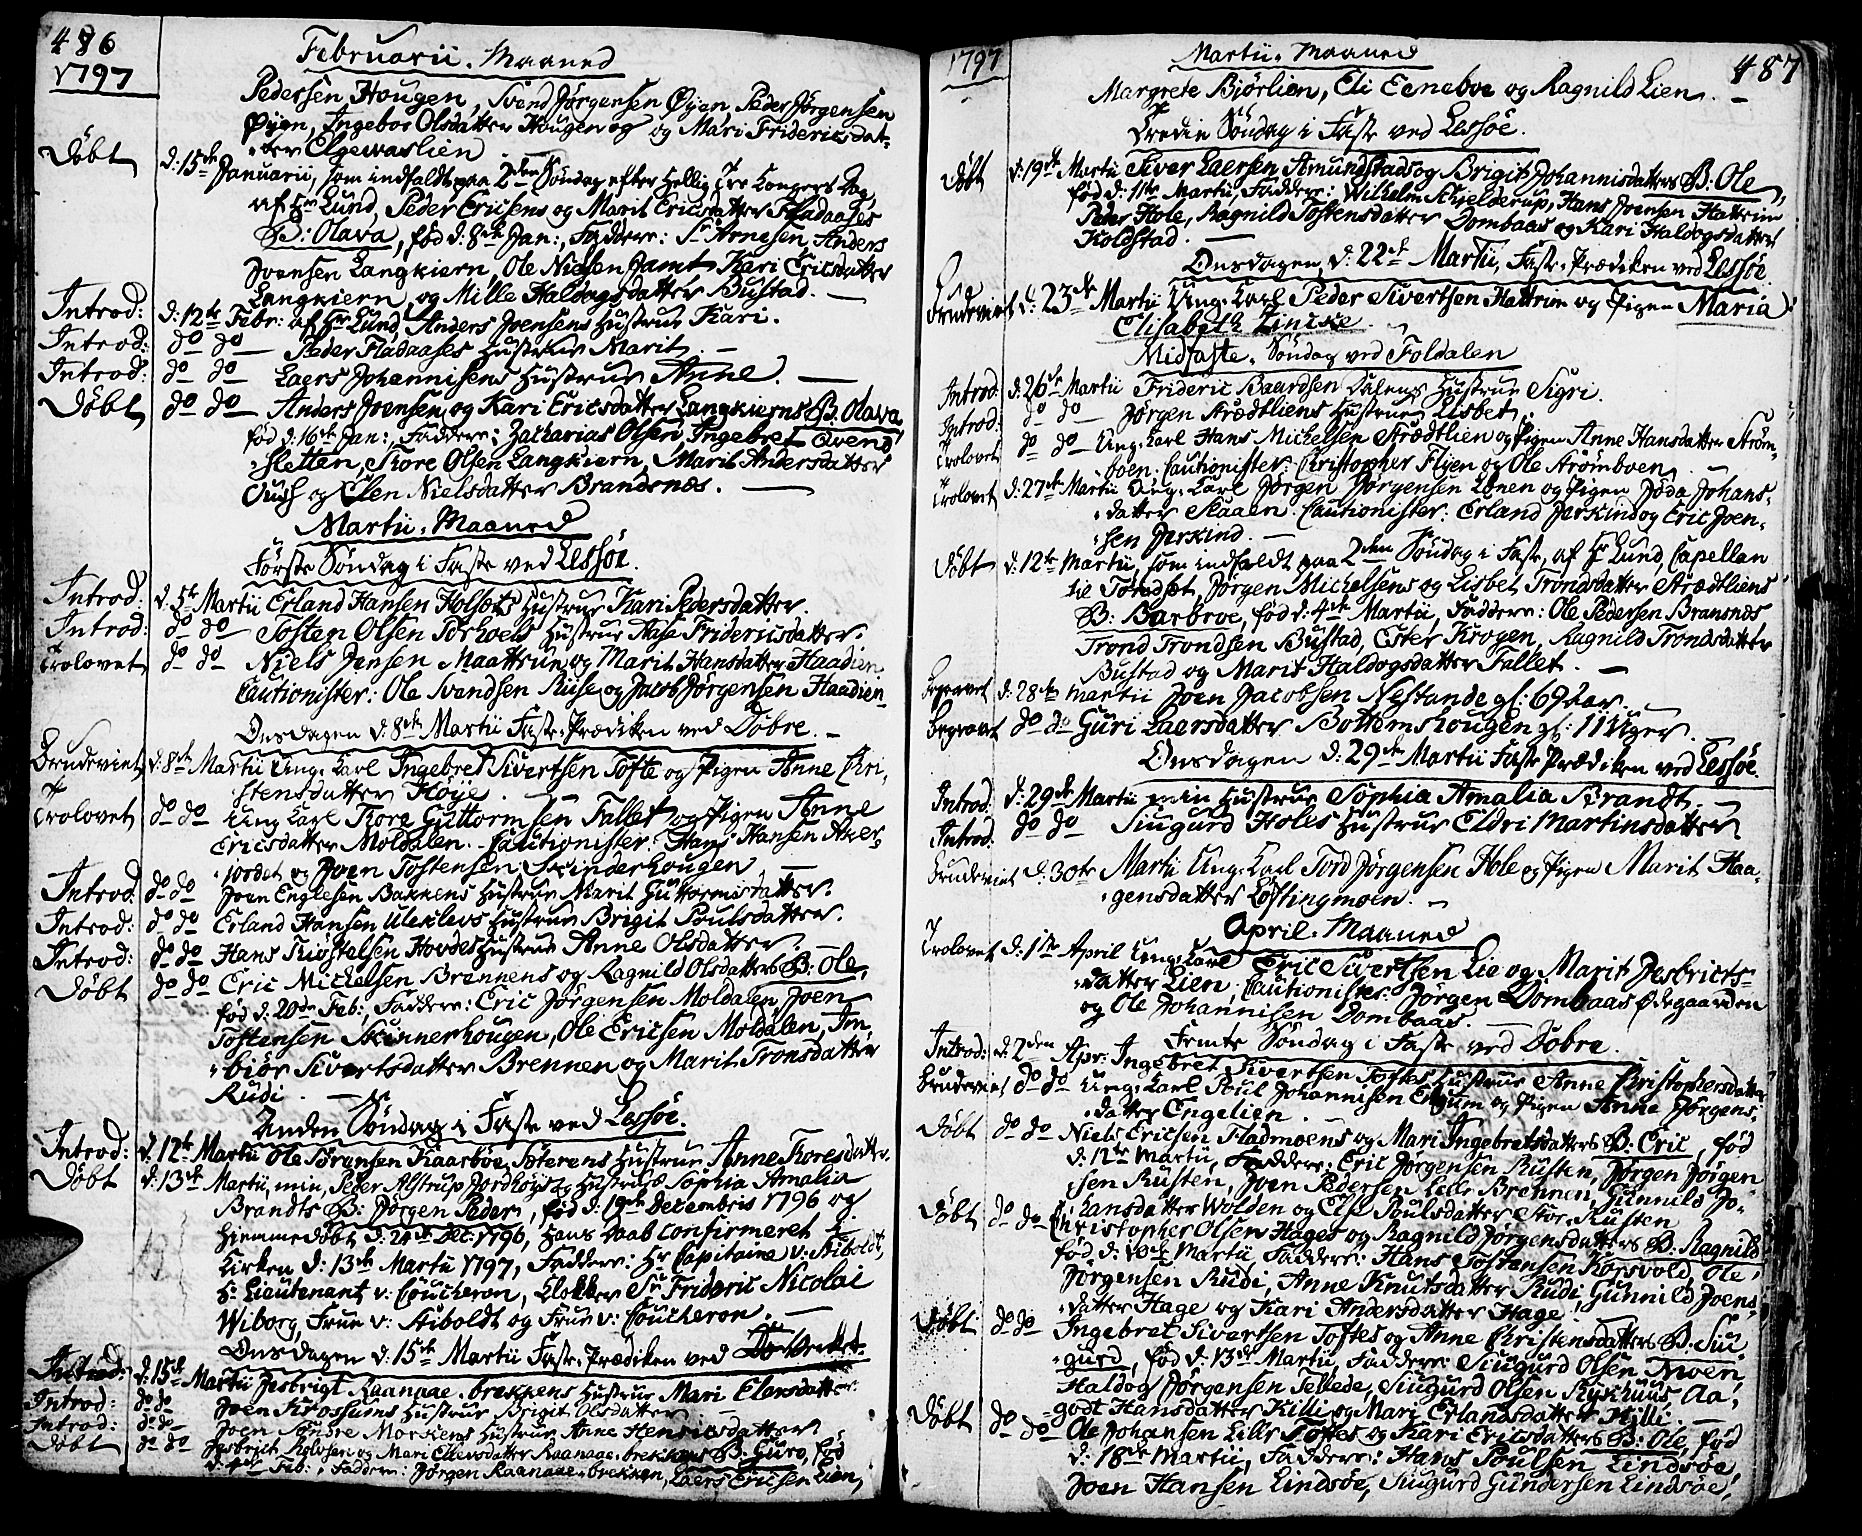 486
1797
Februarii Maaned
Pedersen Hougen, Svend Jørgensen Øyen, Peder Jørgensen
Øyen, Ingebor Olsdatter Hougen og Mari Friderichsdat-
ter Elgevaslien
Døbt d: 15de Januarii, som indfaldt paa 2den Søndag efter Hellig Tre Kongers Dag,
af Hr Lund, Peder Ericsens og Marit Ericsdatter Fladaases
B: Olava, fød d: 8de Jan:, Faddere: Sr Arnesen, Anders
Joensen Langkiern, Ole Nielsen Jamt, Kari Ericsdatter
Langkiern, og Mille Haldogsdatter Bustad.
Introd: d: 12te Febr: af Hr Lund, Anders Joensens Hustrue Kari.
Introd: do do Peder Fladaases Hustrue Marit.
Introd: do do Laers Johannisens Hustrue Anne.
Døbt do do Anders Joensen og Kari Ericsdatter Langkierns B: Olava,
fød d: 16de Jan:, Faddere: Zacharias Olsen, Ingebret Qvend-
sletten, Tore Olsen Langkiern, Marit Andersdatter
Aush og Elen Nielsdatter Brandsnæs.
Martii Maaned
Første Søndag i Faste ved Lessøe.
Introd: d: 5te Martii Erland Hansen Holsets Hustrue Kari Pedersdatter.
Introd: do do Tosten Olsen Torhoels Hustrue Aase Fridericsdatter.
Trolovet do do Niels Jensen Maattrue og Marit Hansdatter Haadien
Cautionister: Ole Svendsen Riise og Jacob Jørgensen Haadien
Onsdagen d: 8de Martii Faste-Prædiken ved Dobre.
Brudeviet d: 8de Martii Ung-Karl Ingebret Sivertsen Tofte og Pigen Anne Chri-
stensdatter Høye.
Trolovet do do Ung Karl Tore Guttormsen Tallet og Pigen Anne
Ericsdatter Moldalen. Cautionister: Hans Hansen Aker-
jordet og Joen Tostensen Skinderhougen
Introd do do Joen Englesen Bakkens Hustrue Marit Guttormsdatter.
Introd: do do Erland Hansen Uleklevs Hustrue Brigit Poulsdatter.
Introd: do do Hans Kiøstelsen Hovdes Hustrue Anne Olsdatter.
Døbt do do Eric Mickelsen Brennens og Ragnild Olsdatters B: Ole,
fød d: 20de Feb:, Faddere: Eric Jørgensen Moldalen, Joen
Tostensen Skinnerhougen, Ole Ericsen Moldalen, Im-
biør Sivertsdatter Brennen og Marit Tronsdatter
Rudi.
Anden Søndag i Faste ved Lessøe.
Introd: d: 12te Martii Ole Sørensen Kaarbøe, Hustrue Anne Toresdatter.
Døbt d: 13de Martii, min, Peder Alstrup Jordhøys og Hustrues Sophia Amalia
Brandts B: Jørgen Peder, fød d: 19de Decembris 1796 og
hjemmedøbt d: 21de Dec: 1796, hans Daab confirmeret i
Kirken d: 13de Martii 1797, Faddere: Hr Capitaine v: Stiboldt,
Hr Lieutenant v: Coucheron, Klokker Sr Frideric Nicolai
Wiborg, Frue v: Stiboldt og Frue v: Coucheron.
Onsdagen d: 15de Martii Faste-Prædiken ved
Introd: d: 15de Martii Jesbrigt Raanaae-brekkens Hustrue Mari Elensdatter
Introd: do do Joen Hustrue Brigit Olsdatter
Introd: do do Joen Søndre Morkens Hustrue Anne Henricsdatter
Døbt do do Jesbrict og Mari Raanaae-brekkens B: Guro, fød
d: Feb:, Faddere: Jørgen Raanaae-brekken, Laers Ericsen Lien,
1797
487
Martii Maaned
Margrete Bjørlien, Eli Eeneboe og Ragnild Lien.
Tredie Søndag i Faste ved Lessøe.
Døbt d: 19de Martii Siver Laersen Amundstads og Brigit Johannisdatters B: Ole,
fød d: 11te Martii, Faddere: Wilhelm Schielderup, Hans Joensen Hattrim
Peder Hole, Ragnild Tostensdatter Dombaas og Kari Haldogsdatter
Koldstad.
Onsdagen, d: 22de Martii, Faste-Prædiken ved Lessøe.
Brudeviet d: 23de Martii Ung-Karl Peder Sivertsen Hattrim og Pigen Maria
Elisabeth Lincke
Midfaste Søndag ved Foldalen
Introd: d: 26de Martii Frideric Baardsen Dalens Hustrue Sigri.
Introd: do do Jørgen Strædtliens Hustrue Lisbet.
Trolovet do do Ung-Karl Hans Mickelsen Strædtlien og Pigen Anne Hansdatter Strøm-
boen. Cautionister: Christopher Flyen og Ole Strømboen.
Trolovet d: 27de Martii Ung-Karl Jørgen Jørgensen Enen og Pigen Jøda Johans-
datter Slaaen. Cautionister: Erland Jerkind og Eric Joen-
sen Jerkind.
Døbt d: 12te Martii, som indfaldt paa 2den Søndag i Faste, af Hr Lund, Capellan
til Tofndset, Jørgen Mickelsens og Lisbet Trondsdatter Strædtliens
B: Barbroe, fød d: 4de Martii, Faddere: Ole Pedersen Bransnæs
Trond Trondsen Bustad, Ester Krogen, Ragnild Trondsdatter
Bustad og Marit Haldogsdatter Tallet.
Begravet d: 28de Martii Joen Jacobsen Nestande gl: 69 Aar.
Begravet do do Guri Laersdatter Bottemshougen gl: 11 Uger.
Onsdagen d: 29de Martii Faste Prædiken ved Lessøe.
Introd: d: 29de Martii min Hustrue Sophia Amalia Brandt.
Introd: do do Siugurd Holes Hustrue Eldri Martinsdatter
Brudeviet d: 30te Martii Ung-Karl Tord Jørgensen Hole og Pigen Marit Haa-
gensdatter Løftingmoen.
April Maaned
Trolovet d: 1te April Ung-Karl Eric Sivertsen Lie og Marit Jesbricts-
datter Lien, Cautionister: Jørgen Dombaas Ødegaarden
og Ole Johannisen Dombaas.
Femte Søndag i Faste ved Dobre.
Introd: d: 2den Apr: Ingebret Sivertsen Toftes Hustrue Anne Christophersdatter
Brudeviet do do Ung-Karl Poul Johannisen Engum og Pigen Anne Jørgens-
datter Engelien.
Døbt do do Niels Ericsen Fladmoens og Mari Ingebretsdatters B: Eric, fød
d: 12te Martii, Faddere: Eric Jørgensen Rusten, Jørgen Jørgen-
sen Rusten, Joen Pedersen Lille Brennen, Gunnild Jo-
hansdatter Wolden og Else Poulsdatter Stor-Rusten
Døbt do do Christopher Olsen Hages og Ragnild Jørgensdatters B: Ragnild
fød d: 10de Martii, Faddere: Hans Tostensen Korsvold, Ole
Jørgensen Rudi, Anne Knutsdatter Rudi, Gunnild Joens-
datter Hage og Kari Andersdatter Hage.
Døbt do do Ingebret Sivertsen Toftes og Anne Christensdatters B: Siu-
gurd, fød d: 13de Martii, Faddere: Siugurd Olsen Moen,
Haldog Jørgensen Tellede, Siugurd Olsen Rykhuus, Aa-
godt Hansdatter Killi og Mari Erlandsdatter Killi.
Døbt do do Ole Johansen Lille Toftes og Kari Ericsdatters B: Ole, fød
d: 18de Martii, Faddere: Hans Poulsen Lindsøe,
Joen Hansen Lindsøe, Siugurd Gundersen Lindsøe,